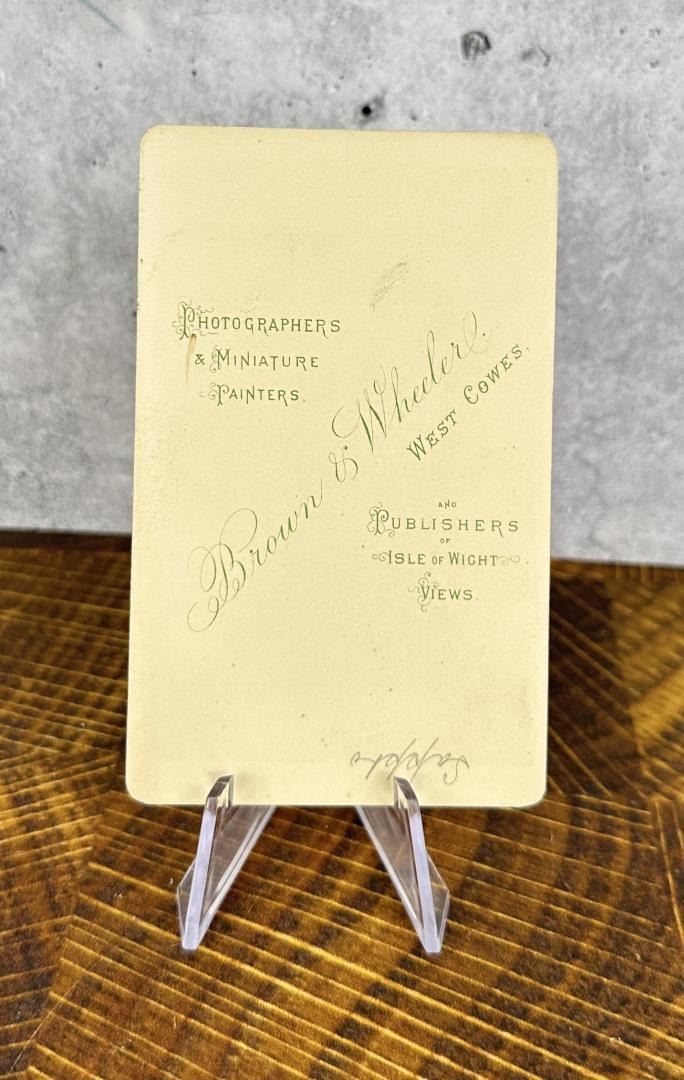 PHOTOGRAPHERS
& MINIATURE
PAINTERS.
Brown & Wheeler.
WEST COWES.
AND
PUBLISHERS
OF
ISLE OF WIGHT
VIEWS.
Sappho